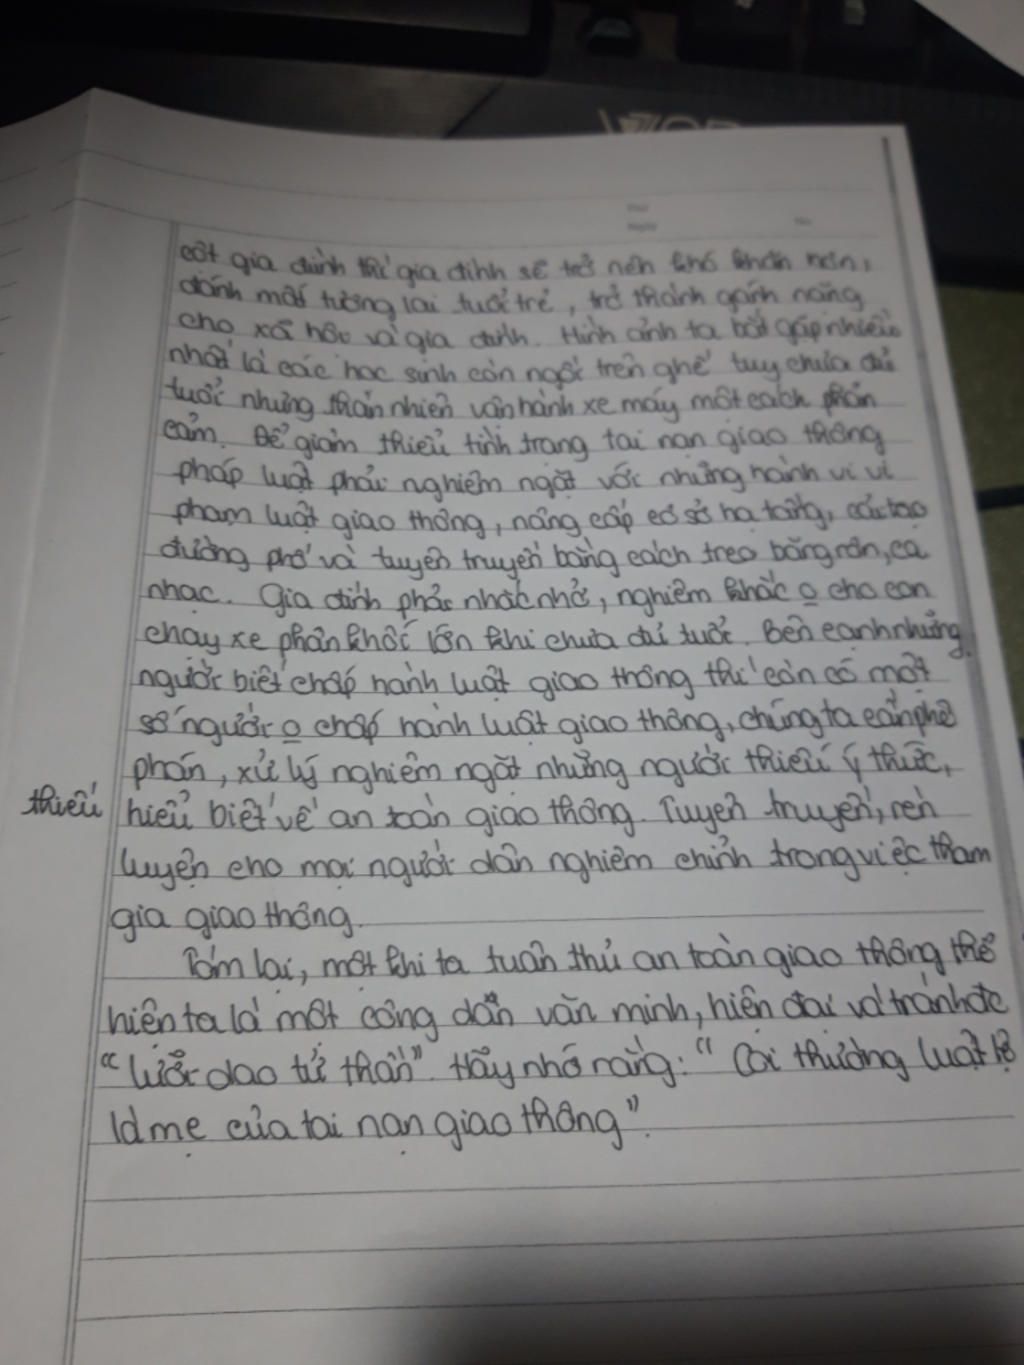 cột gia đình thì gia đình sẽ trở nên khó khăn hơn,
đánh mất tương lai tuổi trẻ, trở thành gánh nặng
cho xã hội và gia đình. Hình ảnh ta bắt gặp nhiều
nhất là các học sinh còn ngồi trên ghế tuy chưa đủ
tuổi nhưng thản nhiên vận hành xe máy một cách phản
cảm. Để giảm thiểu tình trạng tai nạn giao thông
pháp luật phải nghiêm ngặt với những hành vi vi
phạm luật giao thông, nâng cấp cơ sở hạ tầng, cải tạo
đường phố và tuyên truyền bằng cách treo băng rôn, ca
nhạc. Gia đình phải nhắc nhở, nghiêm khắc o cho con
chạy xe phân khối lớn khi chưa đủ tuổi. Bên cạnh những
người biết chấp hành luật giao thông thì còn có một
số người o chấp hành luật giao thông, chúng ta cần phê
phán, xử lý nghiêm ngặt những người thiếu ý thức,
thiếu hiểu biết về an toàn giao thông. Tuyên truyền, rèn
luyện cho mọi người dân nghiêm chỉnh trong việc tham
gia giao thông.
Tóm lại, một khi ta tuân thủ an toàn giao thông thể
hiện ta là một công dân văn minh, hiện đại và tránh đc
"lưỡi dao tử thần". Hãy nhớ rằng: "Coi thường luật lệ
là mẹ của tai nạn giao thông".